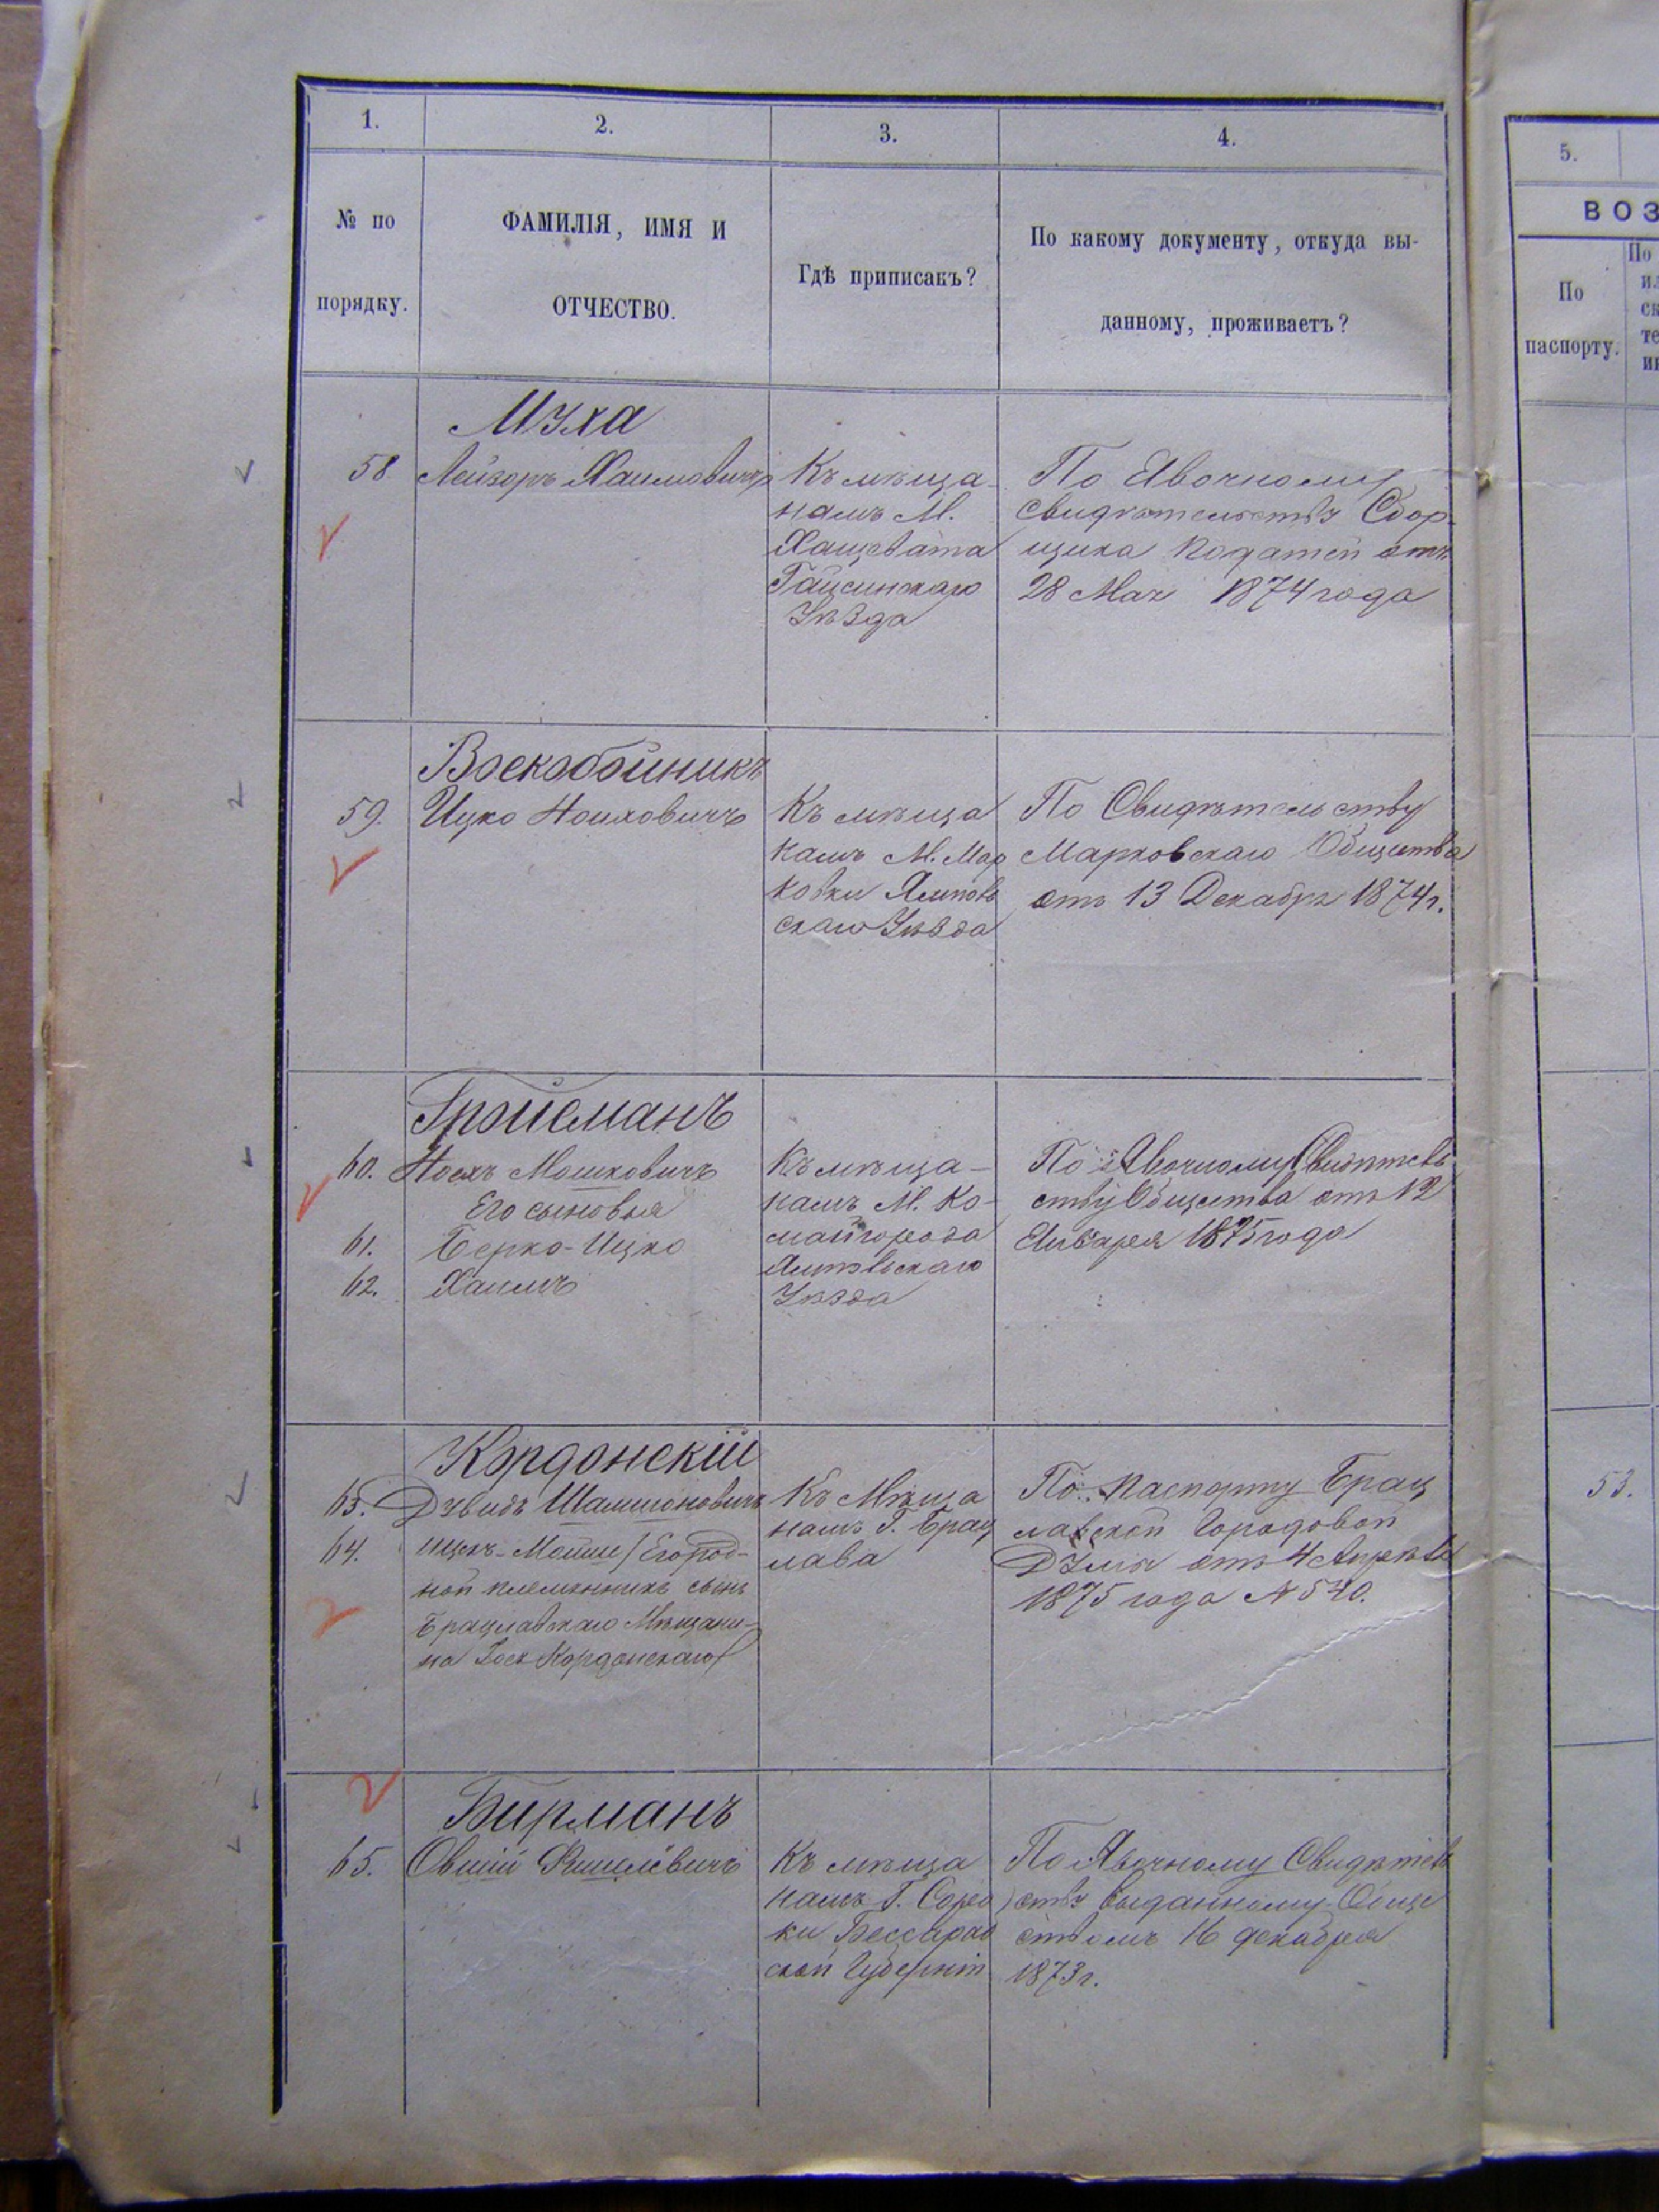 1.
2.
3.
4.
№ по
порядку.
ФАМИЛІЯ, ИМЯ И
ОТЧЕСТВО.
Гдѣ приписанъ?
По какому документу, откуда вы-
данному, проживаетъ?
5.
ВОЗ
По
паспорту.
По
Муха
58 Лейзоръ Хаимовичъ
Къ мѣща-
намъ М.
Хащевата
Гайсинскаго
Уѣзда
По Явочному
свидѣтельству Сбор-
щика податей отъ
28 Мая 1874 года
Воскобойникъ
59. Ицко Ноиховичъ
Къ мѣща
намъ М. Мар
ковки Ямполь
скаго Уѣзда
По Свидѣтельству
Марковскаго Общества
отъ 13 Декабря 1874 г.
Гройсманъ
60. Ноехъ Мошковичъ
Его сыновья
61. Берко-Ицко
62. Хаимъ
Къ мѣща-
намъ М. Ко-
майгорода
Ямпольскаго
Уѣзда
По Явочному Свидѣтель
ству Общества отъ 12
Января 1875 года
Кордонскій
63. Дувидъ Шамшоновичъ
64. Ицекъ-Мойше /Его род-
ной племянникъ сынъ
Брацлавскаго Мѣщани-
на Іося Кордонскаго/
Къ Мѣща
намъ Г. Брац
лава
По Паспорту Брац
лавской Городовой
Думы отъ 4 Апрѣля
1875 года № 540.
53.
Бирманъ
65. Овшій Фишлевичъ
Къ мѣща
намъ Г. Соро
ки Бессараб
ской Губерніи
По Явочному Свидѣтель
ству выданному Обще
ствомъ 16 декабря
1873 г.